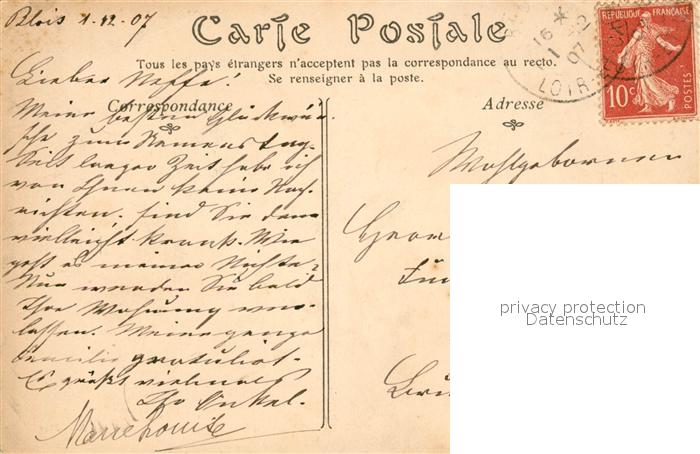 Blois 1.12.07
Carte Postale
Tous les pays étrangers n'acceptent pas la correspondance au recto.
Se renseigner à la poste.
Correspondance
Adresse
REPUBLIQUE FRANÇAISE
10c
POSTES
LOIR
Lieber Neffe!
Meine besten Glückwün-
sche zum Namenstag.
Seit langer Zeit habe ich
von Ihnen keine Nach-
richten. Sind Sie denn
vielleicht krank. Wie
geht es meiner Nichte?
Nun werden Sie bald
Ihre Wohnung ver-
lassen. Meine ganze
Familie gratuliert.
Es grüßt vielmals
Ihr Onkel.
Marie Louise
Wohlgeboren
Herrn
privacy protection
Datenschutz